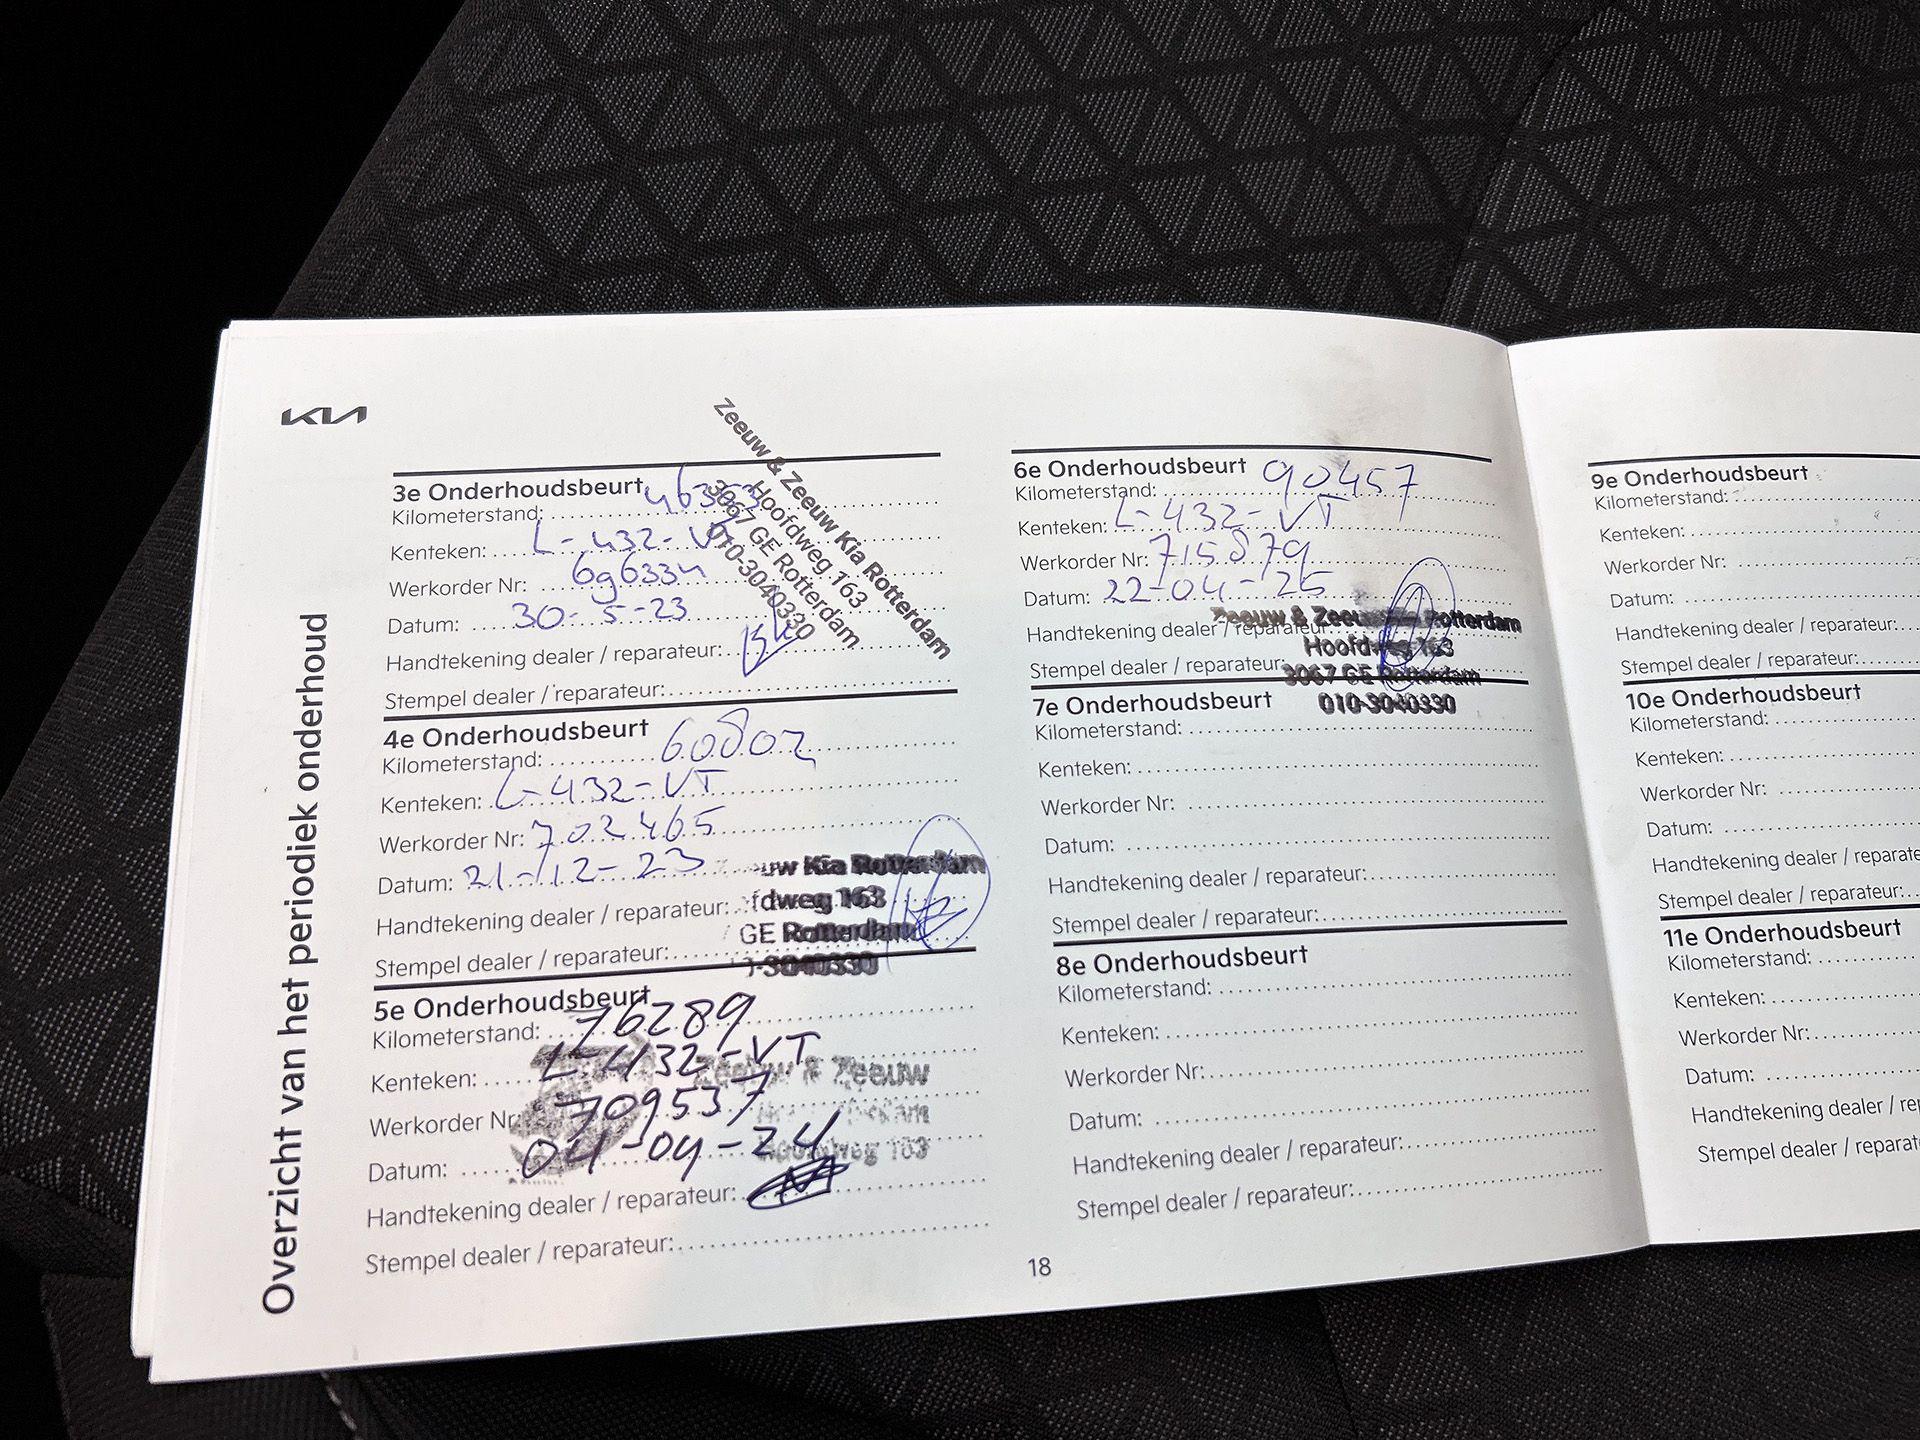 KIA
Overzicht van het periodiek onderhoud
Zeeuw & Zeeuw Kia Rotterdam
Hoofdweg 163
3067 GE Rotterdam
010-3040330
3e Onderhoudsbeurt
Kilometerstand:
Kenteken: L-432-VT
Werkorder Nr:
Datum: 30-5-23
Handtekening dealer / reparateur:
Stempel dealer / reparateur:
4e Onderhoudsbeurt
Kilometerstand: 60802
Kenteken: L-432-VT
Werkorder Nr: 702465
Datum: 21-12-23
Handtekening dealer / reparateur:
Stempel dealer / reparateur:
uw Kia Rotterdam
fdweg 163
GE Rotterdam
-3040330
5e Onderhoudsbeurt
Kilometerstand: 76289
Kenteken: L-432-VT
Werkorder Nr: 709537
Datum: 04-09-24
Handtekening dealer / reparateur:
Stempel dealer / reparateur:
Zeeuw & Zeeuw
Hoofdweg 163
6e Onderhoudsbeurt
Kilometerstand: 90457
Kenteken: L-432-VT
Werkorder Nr: 715879
Datum: 22-04-25
Handtekening dealer / reparateur:
Stempel dealer / reparateur:
Zeeuw & Zeeuw Kia Rotterdam
Hoofdweg 163
3067 GE Rotterdam
010-3040330
7e Onderhoudsbeurt
Kilometerstand:
Kenteken:
Werkorder Nr:
Datum:
Handtekening dealer / reparateur:
Stempel dealer / reparateur:
8e Onderhoudsbeurt
Kilometerstand:
Kenteken:
Werkorder Nr:
Datum:
Handtekening dealer / reparateur:
Stempel dealer / reparateur:
18
9e Onderhoudsbeurt
Kilometerstand:
Kenteken:
Werkorder Nr:
Datum:
Handtekening dealer / reparateur:
Stempel dealer / reparateur:
10e Onderhoudsbeurt
Kilometerstand:
Kenteken:
Werkorder Nr:
Datum:
Handtekening dealer / reparate
Stempel dealer / reparateur:
11e Onderhoudsbeurt
Kilometerstand:
Kenteken:
Werkorder Nr:
Datum:
Handtekening dealer / re
Stempel dealer / reparat